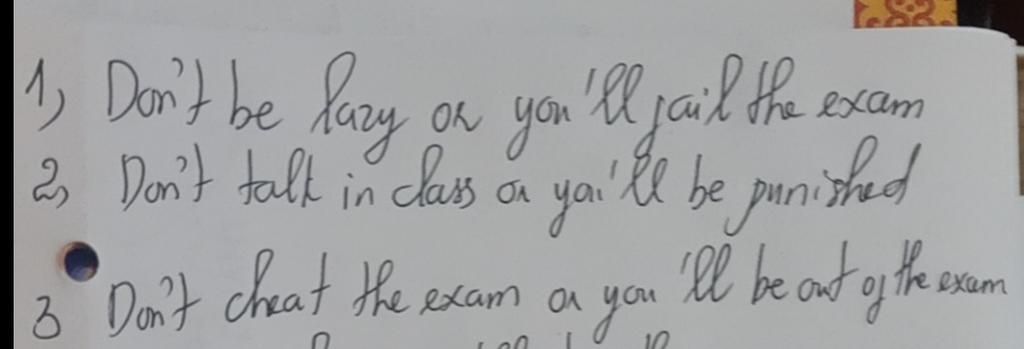 1) Don't be lazy or you'll fail the exam
2) Don't talk in class or you'll be punished
3 Don't cheat the exam or you'll be out of the exam